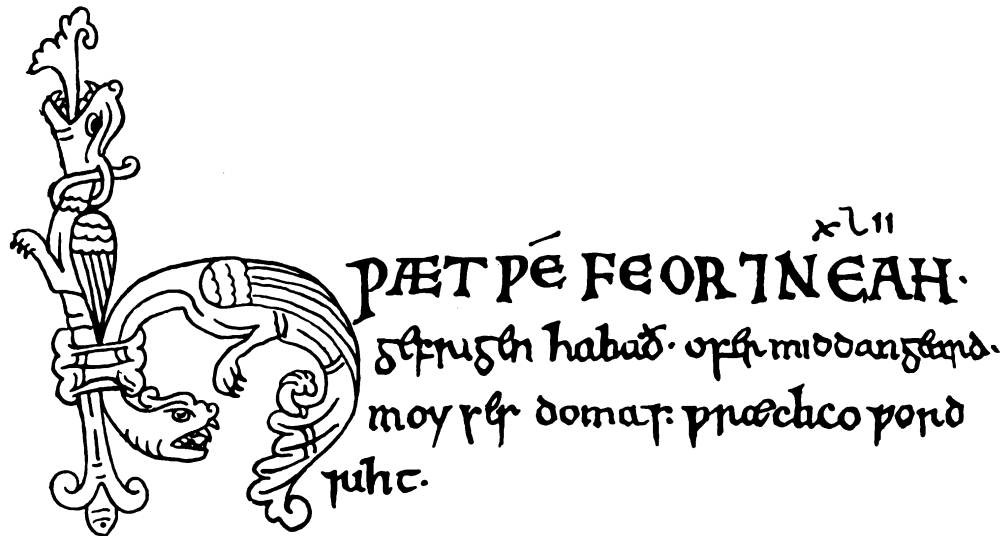 xlii
HǷÆT ǷÉ FEOR ⁊ NEAH·
gefrigen habað· ofer middangeard·
moyses domas· ƿræclico ƿord
riht·